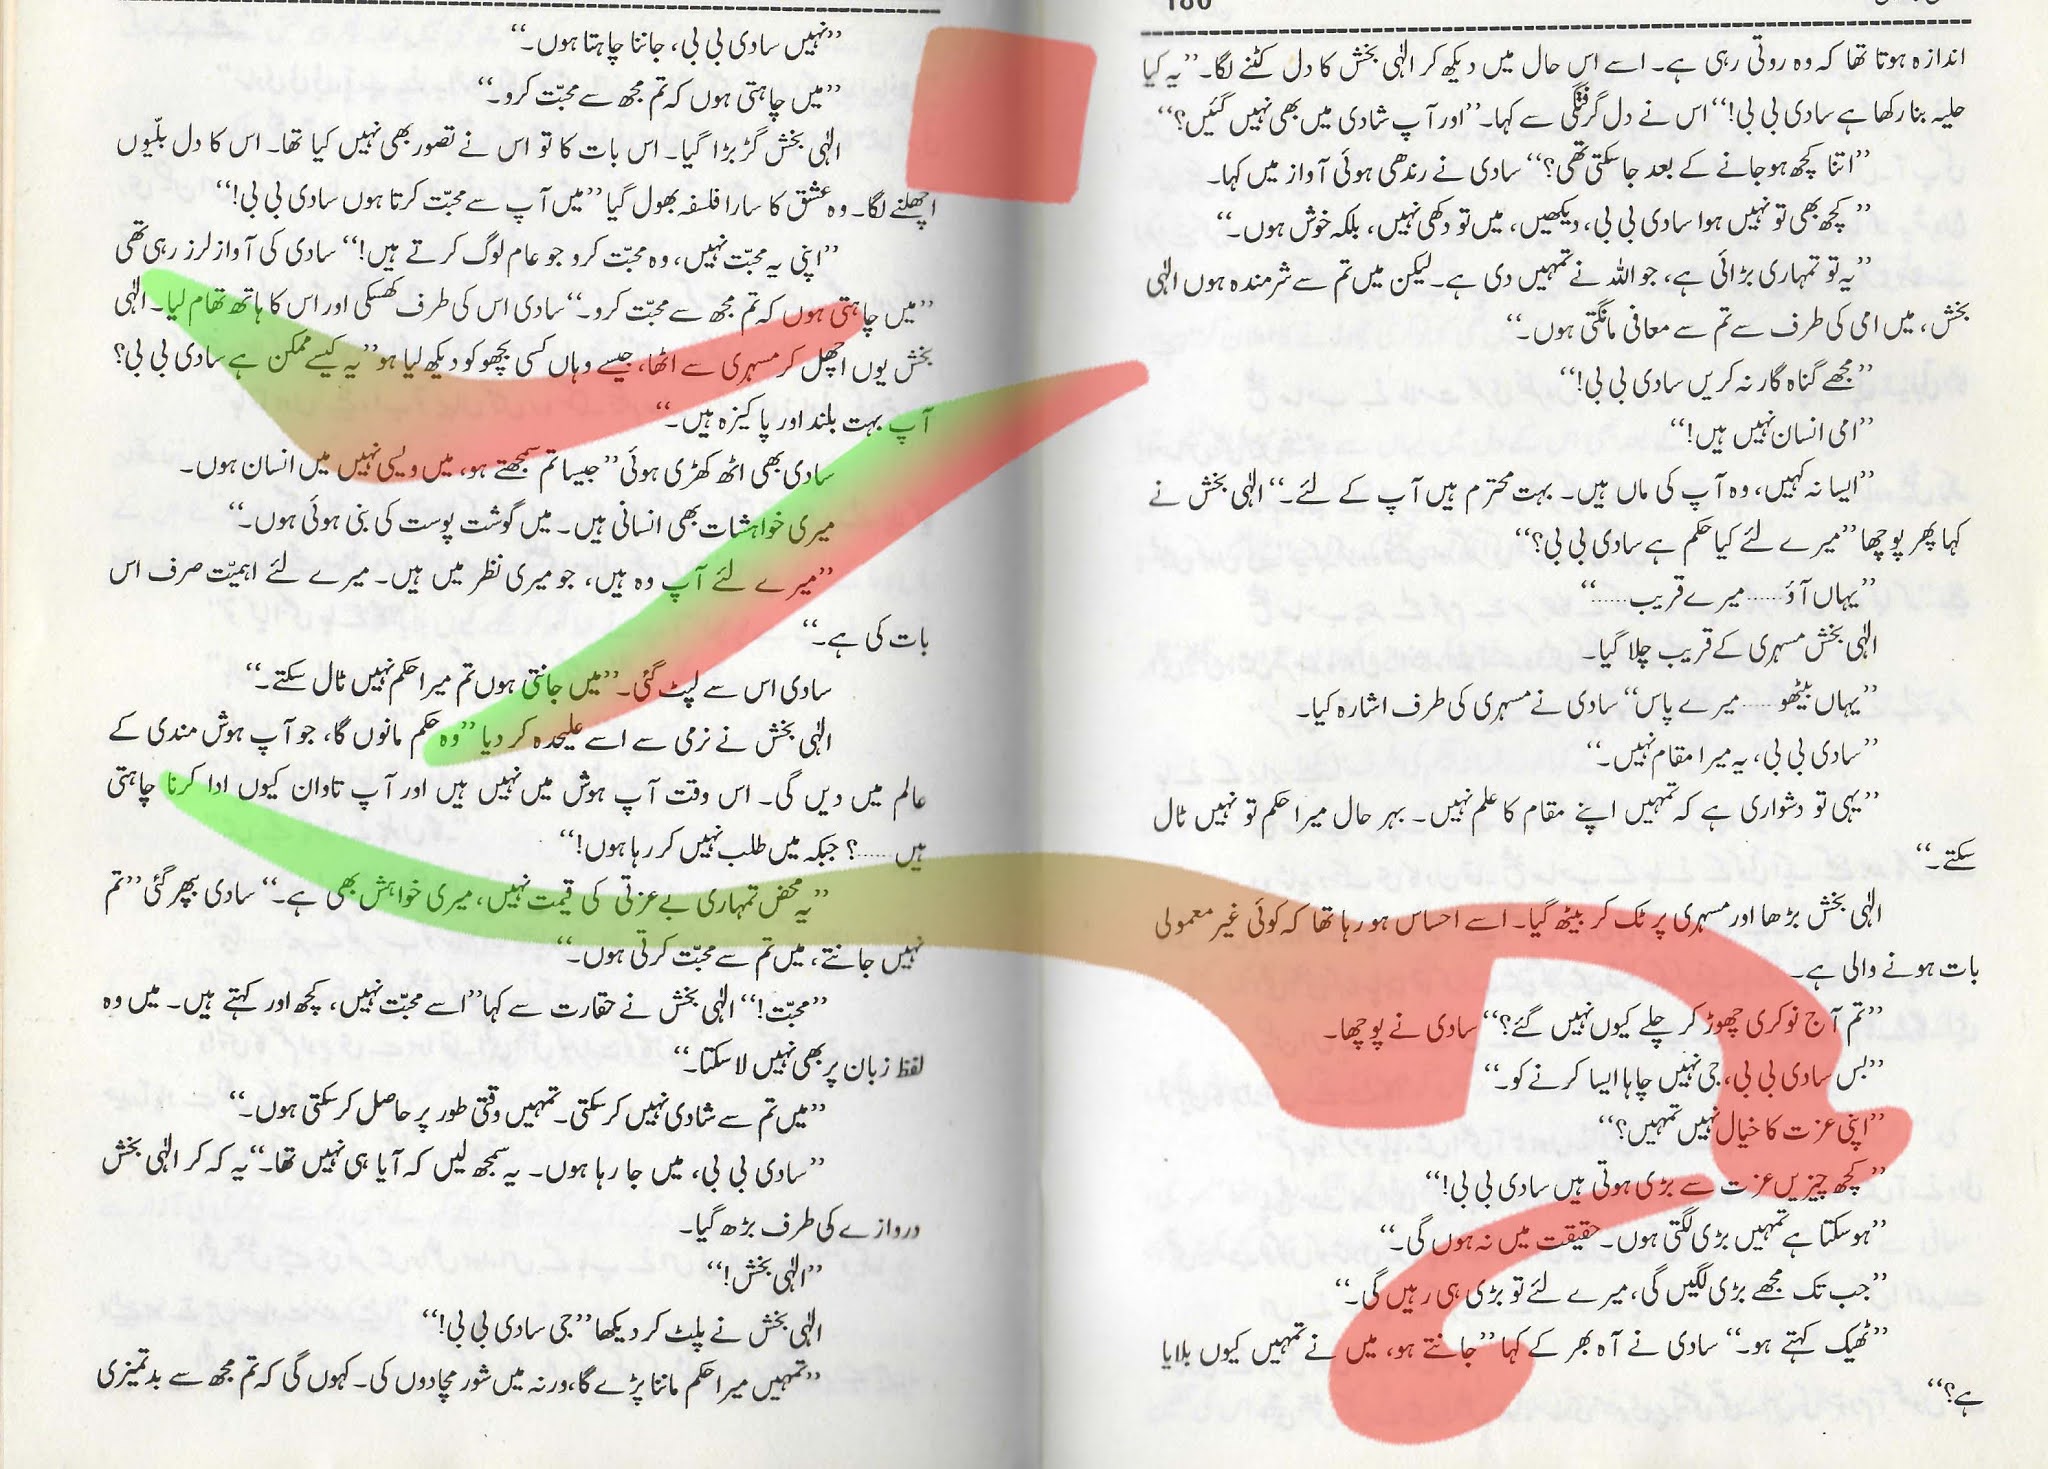 186
اندازہ ہوتا تھا کہ وہ روتی رہی ہے۔ اسے اس حال میں دیکھ کر الٰہی بخش کا دل کٹنے لگا۔ ’’یہ کیا
حلیہ بنا رکھا ہے سادی بی بی!‘‘ اس نے دل گرفتگی سے کہا۔ ’’اور آپ شادی میں بھی نہیں گئیں؟‘‘
’’اتنا کچھ ہو جانے کے بعد جا سکتی تھی؟‘‘ سادی نے رندھی ہوئی آواز میں کہا۔
’’کچھ بھی تو نہیں ہوا سادی بی بی، دیکھیں، میں تو دکھی نہیں، بلکہ خوش ہوں۔‘‘
’’یہ تو تمہاری بڑائی ہے، جو اللہ نے تمہیں دی ہے۔ لیکن میں تم سے شرمندہ ہوں الٰہی
بخش، میں امی کی طرف سے تم سے معافی مانگتی ہوں۔‘‘
’’مجھے گناہ گار نہ کریں سادی بی بی!‘‘
’’امی انسان نہیں ہیں!‘‘
’’ایسا نہ کہیں، وہ آپ کی ماں ہیں۔ بہت محترم ہیں آپ کے لئے۔‘‘ الٰہی بخش نے
کہا پھر پوچھا ’’میرے لئے کیا حکم ہے سادی بی بی؟‘‘
’’یہاں آؤ...... میرے قریب......‘‘
الٰہی بخش مسہری کے قریب چلا گیا۔
’’یہاں بیٹھو...... میرے پاس‘‘ سادی نے مسہری کی طرف اشارہ کیا۔
’’سادی بی بی، یہ میرا مقام نہیں۔‘‘
’’یہی تو دشواری ہے کہ تمہیں اپنے مقام کا علم نہیں۔ بہر حال میرا حکم تو نہیں ٹال
سکتے۔‘‘
الٰہی بخش بڑھا اور مسہری پر ٹک کر بیٹھ گیا۔ اسے احساس ہو رہا تھا کہ کوئی غیر معمولی
بات ہونے والی ہے۔
’’تم آج نوکری چھوڑ کر چلے کیوں نہیں گئے؟‘‘ سادی نے پوچھا۔
’’بس سادی بی بی، جی نہیں چاہا ایسا کرنے کو۔‘‘
’’اپنی عزت کا خیال نہیں تمہیں؟‘‘
’’کچھ چیزیں عزت سے بڑی ہوتی ہیں سادی بی بی!‘‘
’’ہو سکتا ہے تمہیں بڑی لگتی ہوں۔ حقیقت میں نہ ہوں گی۔‘‘
’’جب تک مجھے بڑی لگیں گی، میرے لئے تو بڑی ہی رہیں گی۔‘‘
’’ٹھیک کہتے ہو۔‘‘ سادی نے آہ بھر کے کہا ’’جانتے ہو، میں نے تمہیں کیوں بلایا
ہے؟‘‘
’’نہیں سادی بی بی، جاننا چاہتا ہوں۔‘‘
’’میں چاہتی ہوں کہ تم مجھ سے محبّت کرو۔‘‘
الٰہی بخش گڑبڑا گیا۔ اس بات کا تو اس نے تصور بھی نہیں کیا تھا۔ اس کا دل بلّیوں
اچھلنے لگا۔ وہ عشق کا سارا فلسفہ بھول گیا ’’میں آپ سے محبّت کرتا ہوں سادی بی بی!‘‘
’’اپنی یہ محبّت نہیں، وہ محبّت کرو جو عام لوگ کرتے ہیں!‘‘ سادی کی آواز لرز رہی تھی
’’میں چاہتی ہوں کہ تم مجھ سے محبّت کرو۔‘‘ سادی اس کی طرف کھسکی اور اس کا ہاتھ تھام لیا۔ الٰہی
بخش یوں اچھل کر مسہری سے اٹھا، جیسے وہاں کسی بچھو کو دیکھ لیا ہو ’’یہ کیسے ممکن ہے سادی بی بی؟
آپ بہت بلند اور پاکیزہ ہیں۔‘‘
سادی بھی اٹھ کھڑی ہوئی ’’جیسا تم سمجھتے ہو، میں ویسی نہیں میں انسان ہوں۔
میری خواہشات بھی انسانی ہیں۔ میں گوشت پوست کی بنی ہوئی ہوں۔‘‘
’’میرے لئے آپ وہ ہیں، جو میری نظر میں ہیں۔ میرے لئے اہمیّت صرف اس
بات کی ہے۔‘‘
سادی اس سے لپٹ گئی۔ ’’میں جانتی ہوں تم میرا حکم نہیں ٹال سکتے۔‘‘
الٰہی بخش نے نرمی سے اسے علیحدہ کر دیا ’’وہ حکم مانوں گا، جو آپ ہوش مندی کے
عالم میں دیں گی۔ اس وقت آپ ہوش میں نہیں ہیں اور آپ تاوان کیوں ادا کرنا چاہتی
ہیں......؟ جبکہ میں طلب نہیں کر رہا ہوں!‘‘
’’یہ محض تمہاری بے عزتی کی قیمت نہیں، میری خواہش بھی ہے۔‘‘ سادی بپھر گئی ’’تم
نہیں جانتے، میں تم سے محبّت کرتی ہوں۔‘‘
’’محبّت!‘‘ الٰہی بخش نے حقارت سے کہا ’’اسے محبّت نہیں، کچھ اور کہتے ہیں۔ میں وہ
لفظ زبان پر بھی نہیں لا سکتا۔‘‘
’’میں تم سے شادی نہیں کر سکتی۔ تمہیں وقتی طور پر حاصل کر سکتی ہوں۔‘‘
’’سادی بی بی، میں جا رہا ہوں۔ یہ سمجھ لیں کہ آیا ہی نہیں تھا۔‘‘ یہ کہہ کر الٰہی بخش
دروازے کی طرف بڑھ گیا۔
’’الٰہی بخش!‘‘
الٰہی بخش نے پلٹ کر دیکھا ’’جی سادی بی بی!‘‘
’’تمہیں میرا حکم ماننا پڑے گا، ورنہ میں شور مچا دوں گی۔ کہوں گی کہ تم مجھ سے بدتمیزی